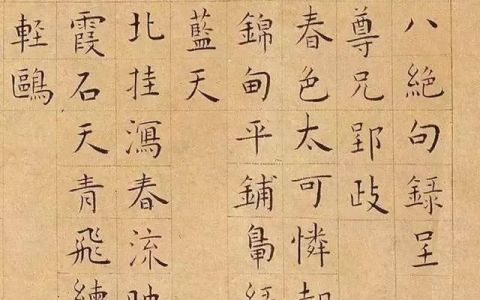 八絕句録呈
尊兄郢政
春色太可憐却
錦甸平鋪鳧
藍天
北挂瀉春流映
霞石天青飛練
輕鷗